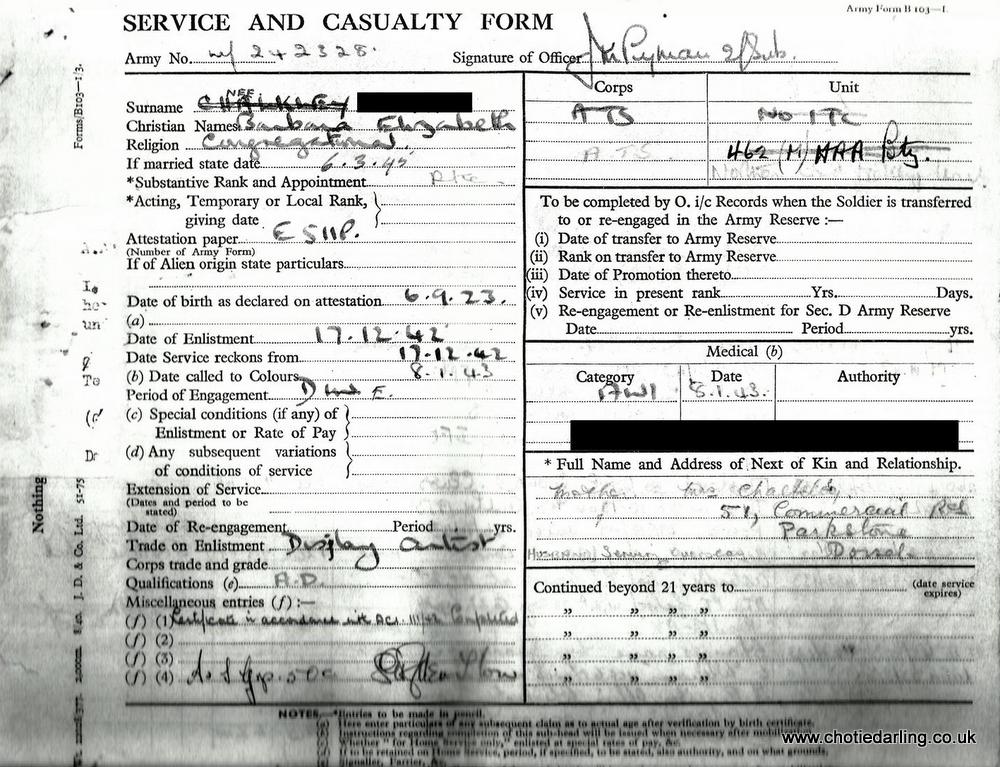 Army Form B 103—I.
SERVICE AND CASUALTY FORM
Army No. W/ 242328. Signature of Officer
Forms/B103—1/3.
Corps Unit
NEE
Surname CHALKLEY
ATS No ITC
Christian Names Barbara Elizabeth
Religion Congregational.
ATS 462 (M) HAA Bty.
If married state date 6.3.45
*Substantive Rank and Appointment Pte
*Acting, Temporary or Local Rank, giving date
Attestation paper E511P.
(Number of Army Form)
If of Alien origin state particulars
Date of birth as declared on attestation 6.9.23.
(a)
Date of Enlistment 17.12.42
Date Service reckons from 17.12.42
(b) Date called to Colours 8.1.43
Period of Engagement D of E.
(c) Special conditions (if any) of
Enlistment or Rate of Pay
(d) Any subsequent variations
of conditions of service
Extension of Service
(Dates and period to be
stated)
Date of Re-engagement Period yrs.
Trade on Enlistment Display artist
Corps trade and grade
Qualifications (e) A.D.
Miscellaneous entries (f) :—
(f) (1) Certificate in accordance with ACI. Completed
(f) (2)
(f) (3)
(f) (4) A & S Gp. 50
To be completed by O. i/c Records when the Soldier is transferred
to or re-engaged in the Army Reserve :—
(i) Date of transfer to Army Reserve
(ii) Rank on transfer to Army Reserve
(iii) Date of Promotion thereto
(iv) Service in present rank Yrs. Days.
(v) Re-engagement or Re-enlistment for Sec. D Army Reserve
Date Period yrs.
Medical (b)
Category Date Authority
8.1.43.
* Full Name and Address of Next of Kin and Relationship.
Mother Mrs Chalkley
51, Commercial Rd
Parkstone
Husband Serving overseas Dorset
Continued beyond 21 years to (date service
expires)
" " " "
" " " "
" " " "
" " " "
Nothing
51-75 J. D. & Co. Ltd.
NOTES.—*Entries to be made in pencil.
(a) Here enter particulars of any subsequent claim as to actual age after verification by birth certificate.
www.chotiedarling.co.uk